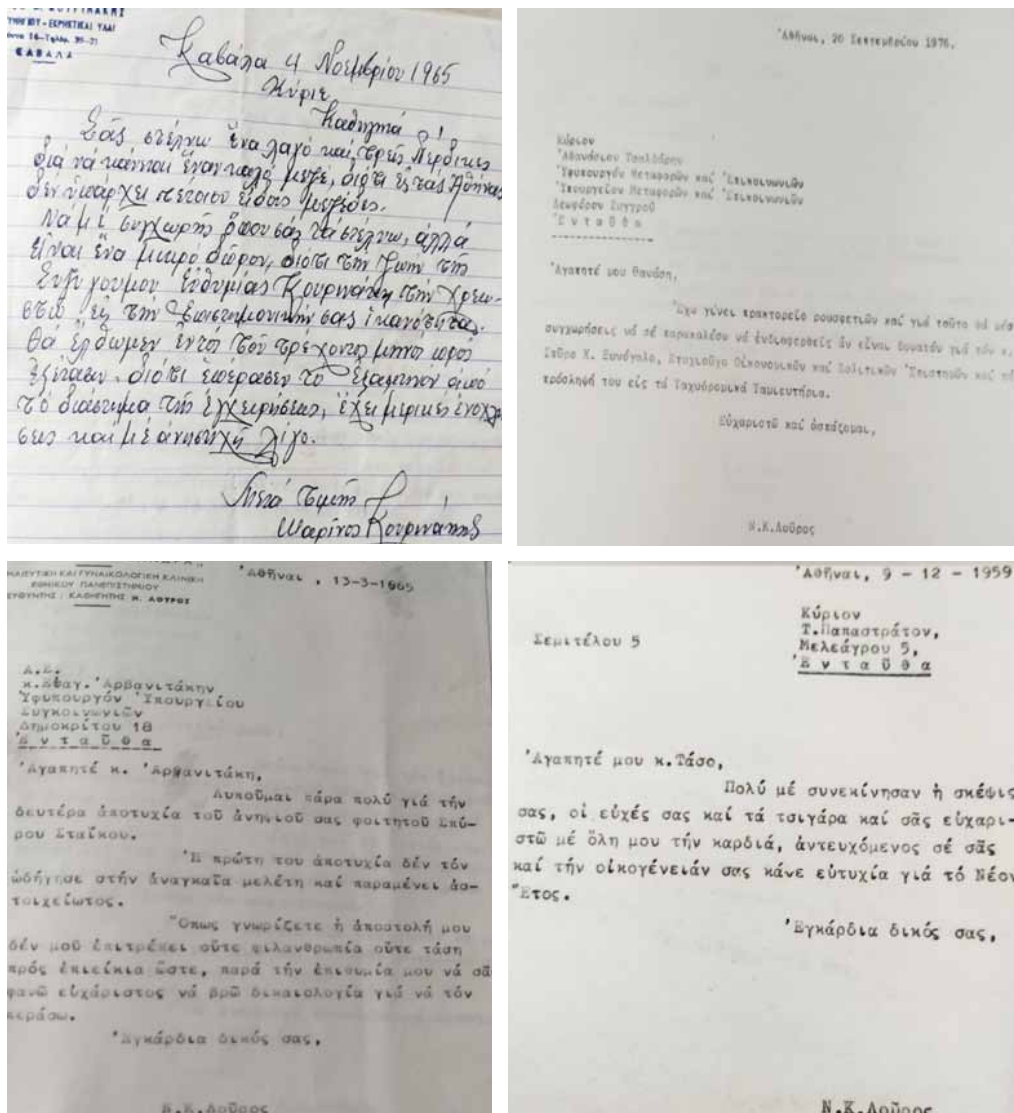 ΚΑΒΑΛΑ
Καβάλα 4 Νοεμβρίου 1965
Κύριε
Καθηγητά!
Σᾶς στέλνω ἕνα λαγό καί τρεῖς πέρδικες
διά νά κάνητε ἕναν καλό μεζέ, διότι εἰς τάς Ἀθήνας
δεν ὑπάρχει τέτοιου εἴδος μεζέδες.
Νά μέ συγχωρῆς ὅπου σᾶς τα στέλνω, ἀλλά
εἶναι ἕνα μικρό δῶρον, διότι τήν ζωήν τῆς
Συζύγου μου Εὐθυμίας τήν χρεω-
στῶ εἰς τήν ἐπιστημονικήν σας ἱκανότητα.
Θά ἔλθωμεν ἐντός τοῦ τρέχοντος μηνός πρός
ἐξέτασιν, διότι ἐπέρασεν τό ἑξάμηνον ἀπό
τό διάστημα τῆς ἐγχειρήσεως, ἔχει μερικές ἐνοχλή
σεις καί μέ ἀνησυχῆ λίγο.
Μετά τιμῆς
Μαρίνος
Ἀθῆναι, 20 Σεπτεμβρίου 1976.
Κύριον
Ἀθανάσιον Τσαλδάρην
Ὑφυπουργόν Μεταφορῶν καί Ἐπικοινωνιῶν
Ὑπουργεῖον Μεταφορῶν καί Ἐπικοινωνιῶν
Λεωφόρον Συγγροῦ
Ἐνταῦθα
Ἀγαπητέ μου Θανάση,
Ἔχω γίνει πρακτορεῖο ρουσφετιῶν καί γιά τοῦτο θά μέ
συγχωρήσεις νά σέ παρακαλέσω νά ἐνδιαφερθεῖς ἄν εἶναι δυνατόν γιά τόν κ.
Σπῦρο Χ. Πτυχιοῦχο Οἰκονομικῶν καί Πολιτικῶν Ἐπιστημῶν καί
πρόσληψή του εἰς τά Ταχυδρομικά Ταμιευτήρια.
Εὐχαριστῶ καί ἀσπάζομαι,
Ν.Κ.Λοῦρος
ΜΑΙΕΥΤΙΚΗ ΚΑΙ ΓΥΝΑΙΚΟΛΟΓΙΚΗ ΚΛΙΝΙΚΗ
ΕΘΝΙΚΟΥ ΠΑΝΕΠΙΣΤΗΜΙΟΥ
ΚΑΘΗΓΗΤΗΣ Ν. ΛΟΥΡΟΣ
Ἀθῆναι, 13-3-1965
Α.Ε.
κ.Εὐαγ. Ἀρβανιτάκην
Ὑφυπουργόν Ὑπουργείου
Συγκοινωνιῶν
Δημοκρίτου 18
Ἐνταῦθα
Ἀγαπητέ κ. Ἀρβανιτάκη,
Λυποῦμαι πάρα πολύ γιά τήν
δευτέρα ἀποτυχία τοῦ ἀνηψιοῦ σας φοιτητοῦ Σπύ-
ρου Σταίκου.
Ἡ πρώτη του ἀποτυχία δέν τόν
ὡδήγησε στήν ἀναγκαῖα μελέτη καί παραμένει ἀσ-
τοιχείωτος.
Ὅπως γνωρίζετε ἡ ἀποστολή μου
δέν μοῦ ἐπιτρέπει οὔτε φιλανθρωπία οὔτε τάση
πρός ἐπιείκια ὥστε, παρά τήν ἐπιθυμία μου νά σᾶ
φανῶ εὐχάριστος νά βρῶ δικαιολογία γιά νά τόν
περάσω.
Ἐγκάρδια δικός σας,
Ν.Κ.Λοῦρος
Ἀθῆναι, 9 - 12 - 1959
Σεμιτέλου 5
Κύριον
Τ.Παπαστράτον,
Μελεάγρου 5,
Ἐνταῦθα
Ἀγαπητέ μου κ.Τάσο,
Πολύ μέ συνεκίνησαν ἡ σκέψις
σας, οἱ εὐχές σας καί τά τσιγάρα καί σᾶς εὐχαρι-
στῶ μέ ὅλη μου τήν καρδιά, ἀντευχόμενος σέ σᾶς
καί τήν οἰκογένειάν σας κάνε εὐτυχία γιά τό Νέον
Ἔτος.
Ἐγκάρδια δικός σας,
Ν.Κ.Λοῦρος